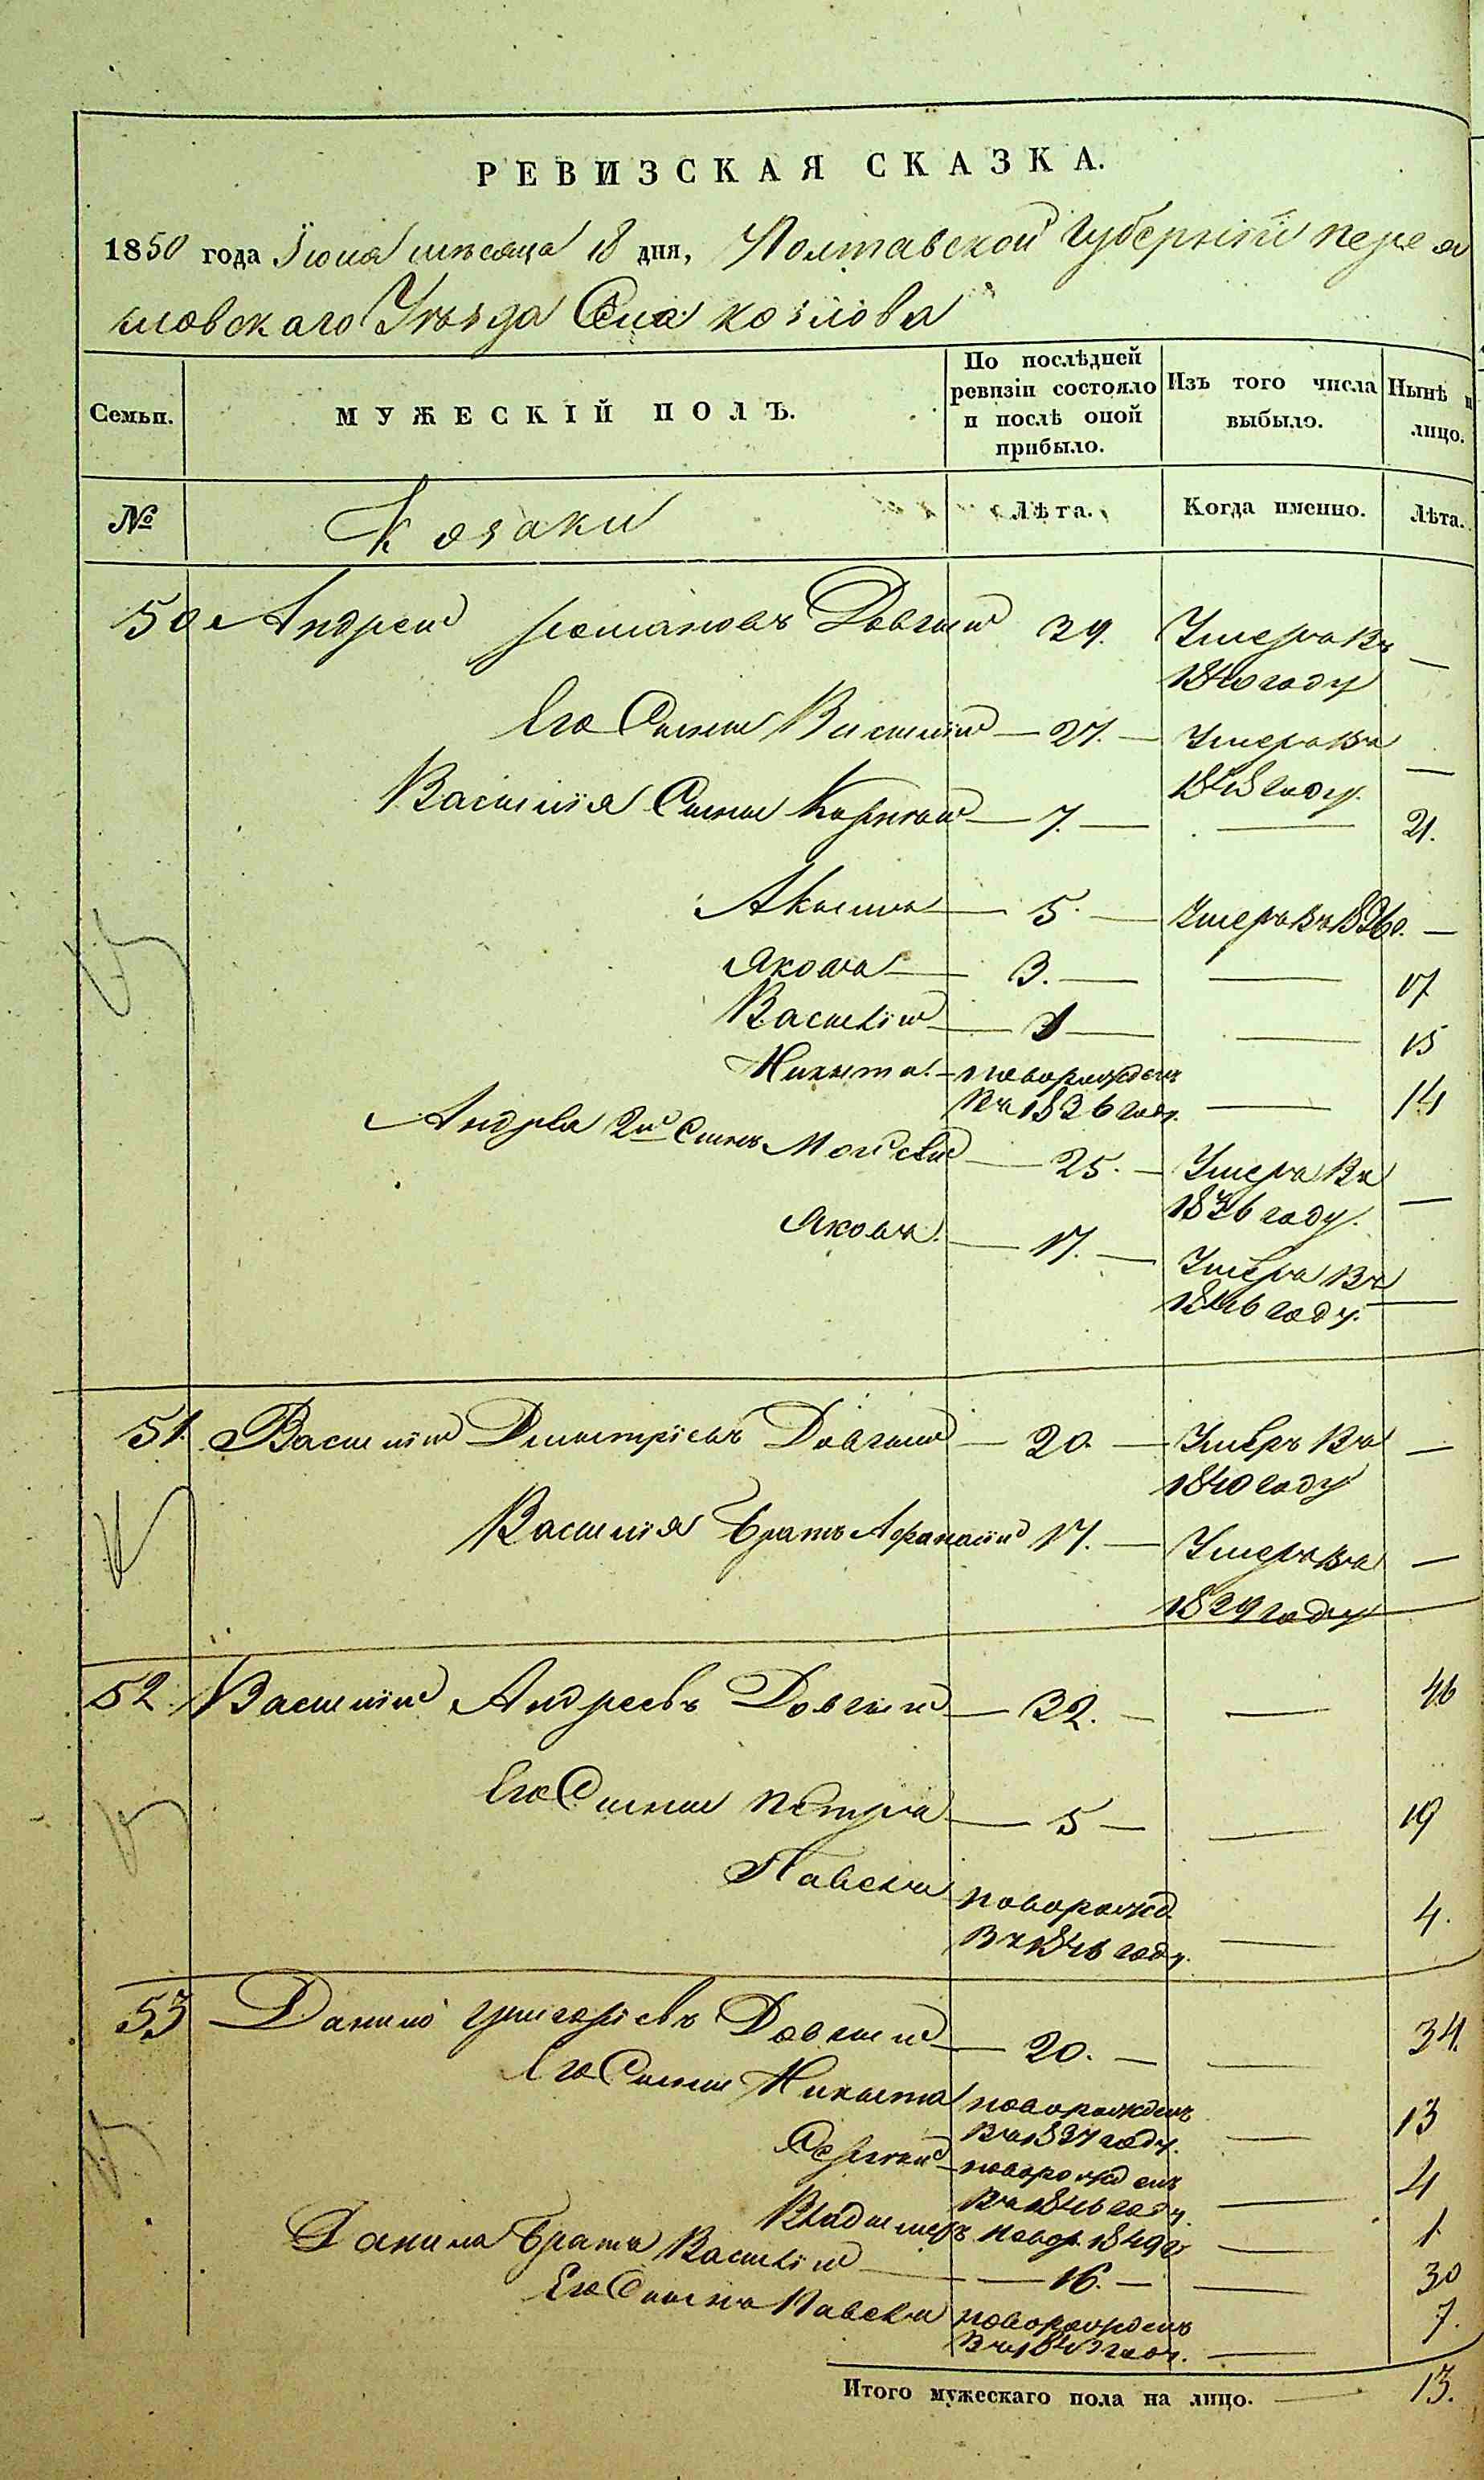 РЕВИЗСКАЯ СКАЗКА.
1850 года Iюня мѣсяца 18 дня, Полтавской Губернiи перея
словскаго Уѣзда Села козлова
Семьи. МУЖЕСКIЙ ПОЛЪ. По послѣдней ревизiи состояло и послѣ оной прибыло. Изъ того числа выбыло. Нынѣ н лицо.
№ Козаки Лѣта. Когда именно. Лѣта.
50 Андрей романовъ Довгий 39. Умеръ Въ —
1840 году
Его Сыны Василiй — 27. — Умеръ Въ
1848 году. —
Василiя Сыны Корнѣй — 7. — — 21.
Акимъ — 5. — Умеръ Въ 1836г. —
Яковъ — 3. — — 17
Василiй — 1 — — 15
Никита. — новорожденъ
Въ 1836 году. — 14
Андрея 2й Сынъ Мойсѣй — 25. — Умеръ Въ
1846 году. —
Яковъ. — 17. — Умеръ Въ
1846 году. —
51. Василiй Дмитрiевъ Довгий — 20. — Умеръ Въ —
1840 году
Василiя братъ Афанасiй 17. — Умеръ Въ —
1839 году
52. Василiй Андреевъ Довгий — 32. — — 46
Его Сыны петръ — 5 — — 19
Павелъ новорожд.
Въ 1846 году. — 4.
53 Данило григорiевъ Довгий — 20. — — 34.
Его Сыны Никита новорожденъ
Въ 1837 году. — 13
Сергѣй — новорожденъ
Въ 1846 году. — 4
Владимеръ новор. 1849г — 1.
Данила братъ Василiй — 16. — — 30
Его Сынъ Павелъ новорожденъ
Въ 1843 году. — 7.
Итого мужескаго пола на лицо. — 13.